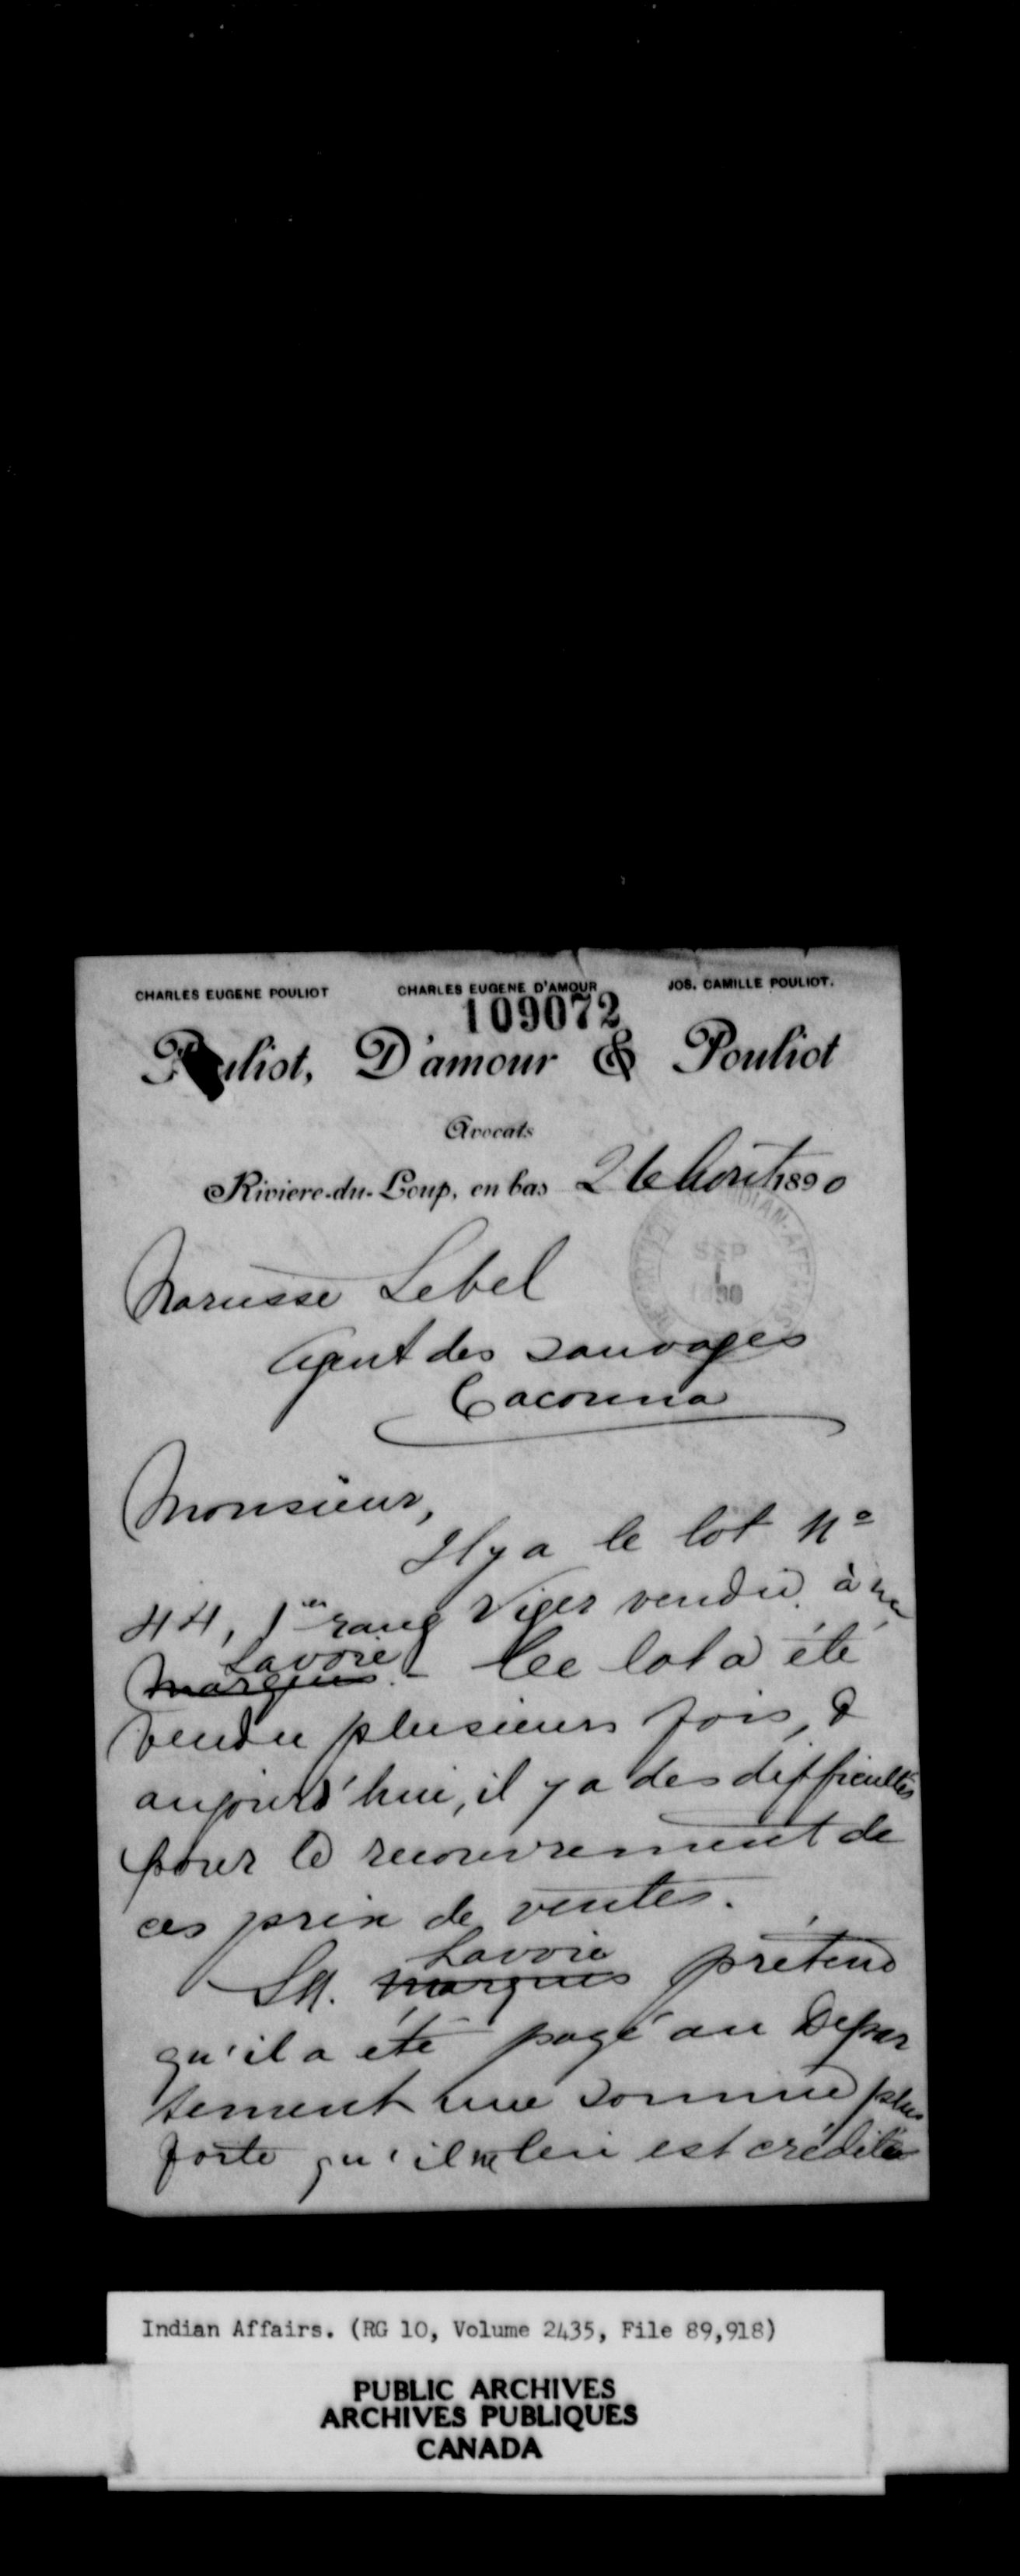 CHARLES EUGENE POULIOT CHARLES EUGENE D'AMOUR JOS. CAMILLE POULIOT.
109072
Pouliot, D'amour & Pouliot
Avocats
Riviere-du-Loup, en bas 26 Août 1890
SEP 1 1890
Narcisse Lebel
Agent des Sauvages
Cacouna
Monsieur,
Il y a le lot No
44, 1er rang Viger vendu à un
Lavoie
Marquis. - Ce lot a été
vendu plusieurs fois, &
aujourd'hui, il y a des difficultés
pour le recouvrement de
ces prix de ventes.
Lavoie
M. Marquis prétend
qu'il a été payé au Depar
tement une somme plus
forte qu'il ne lui est crédité
Indian Affairs. (RG 10, Volume 2435, File 89,918)
PUBLIC ARCHIVES
ARCHIVES PUBLIQUES
CANADA